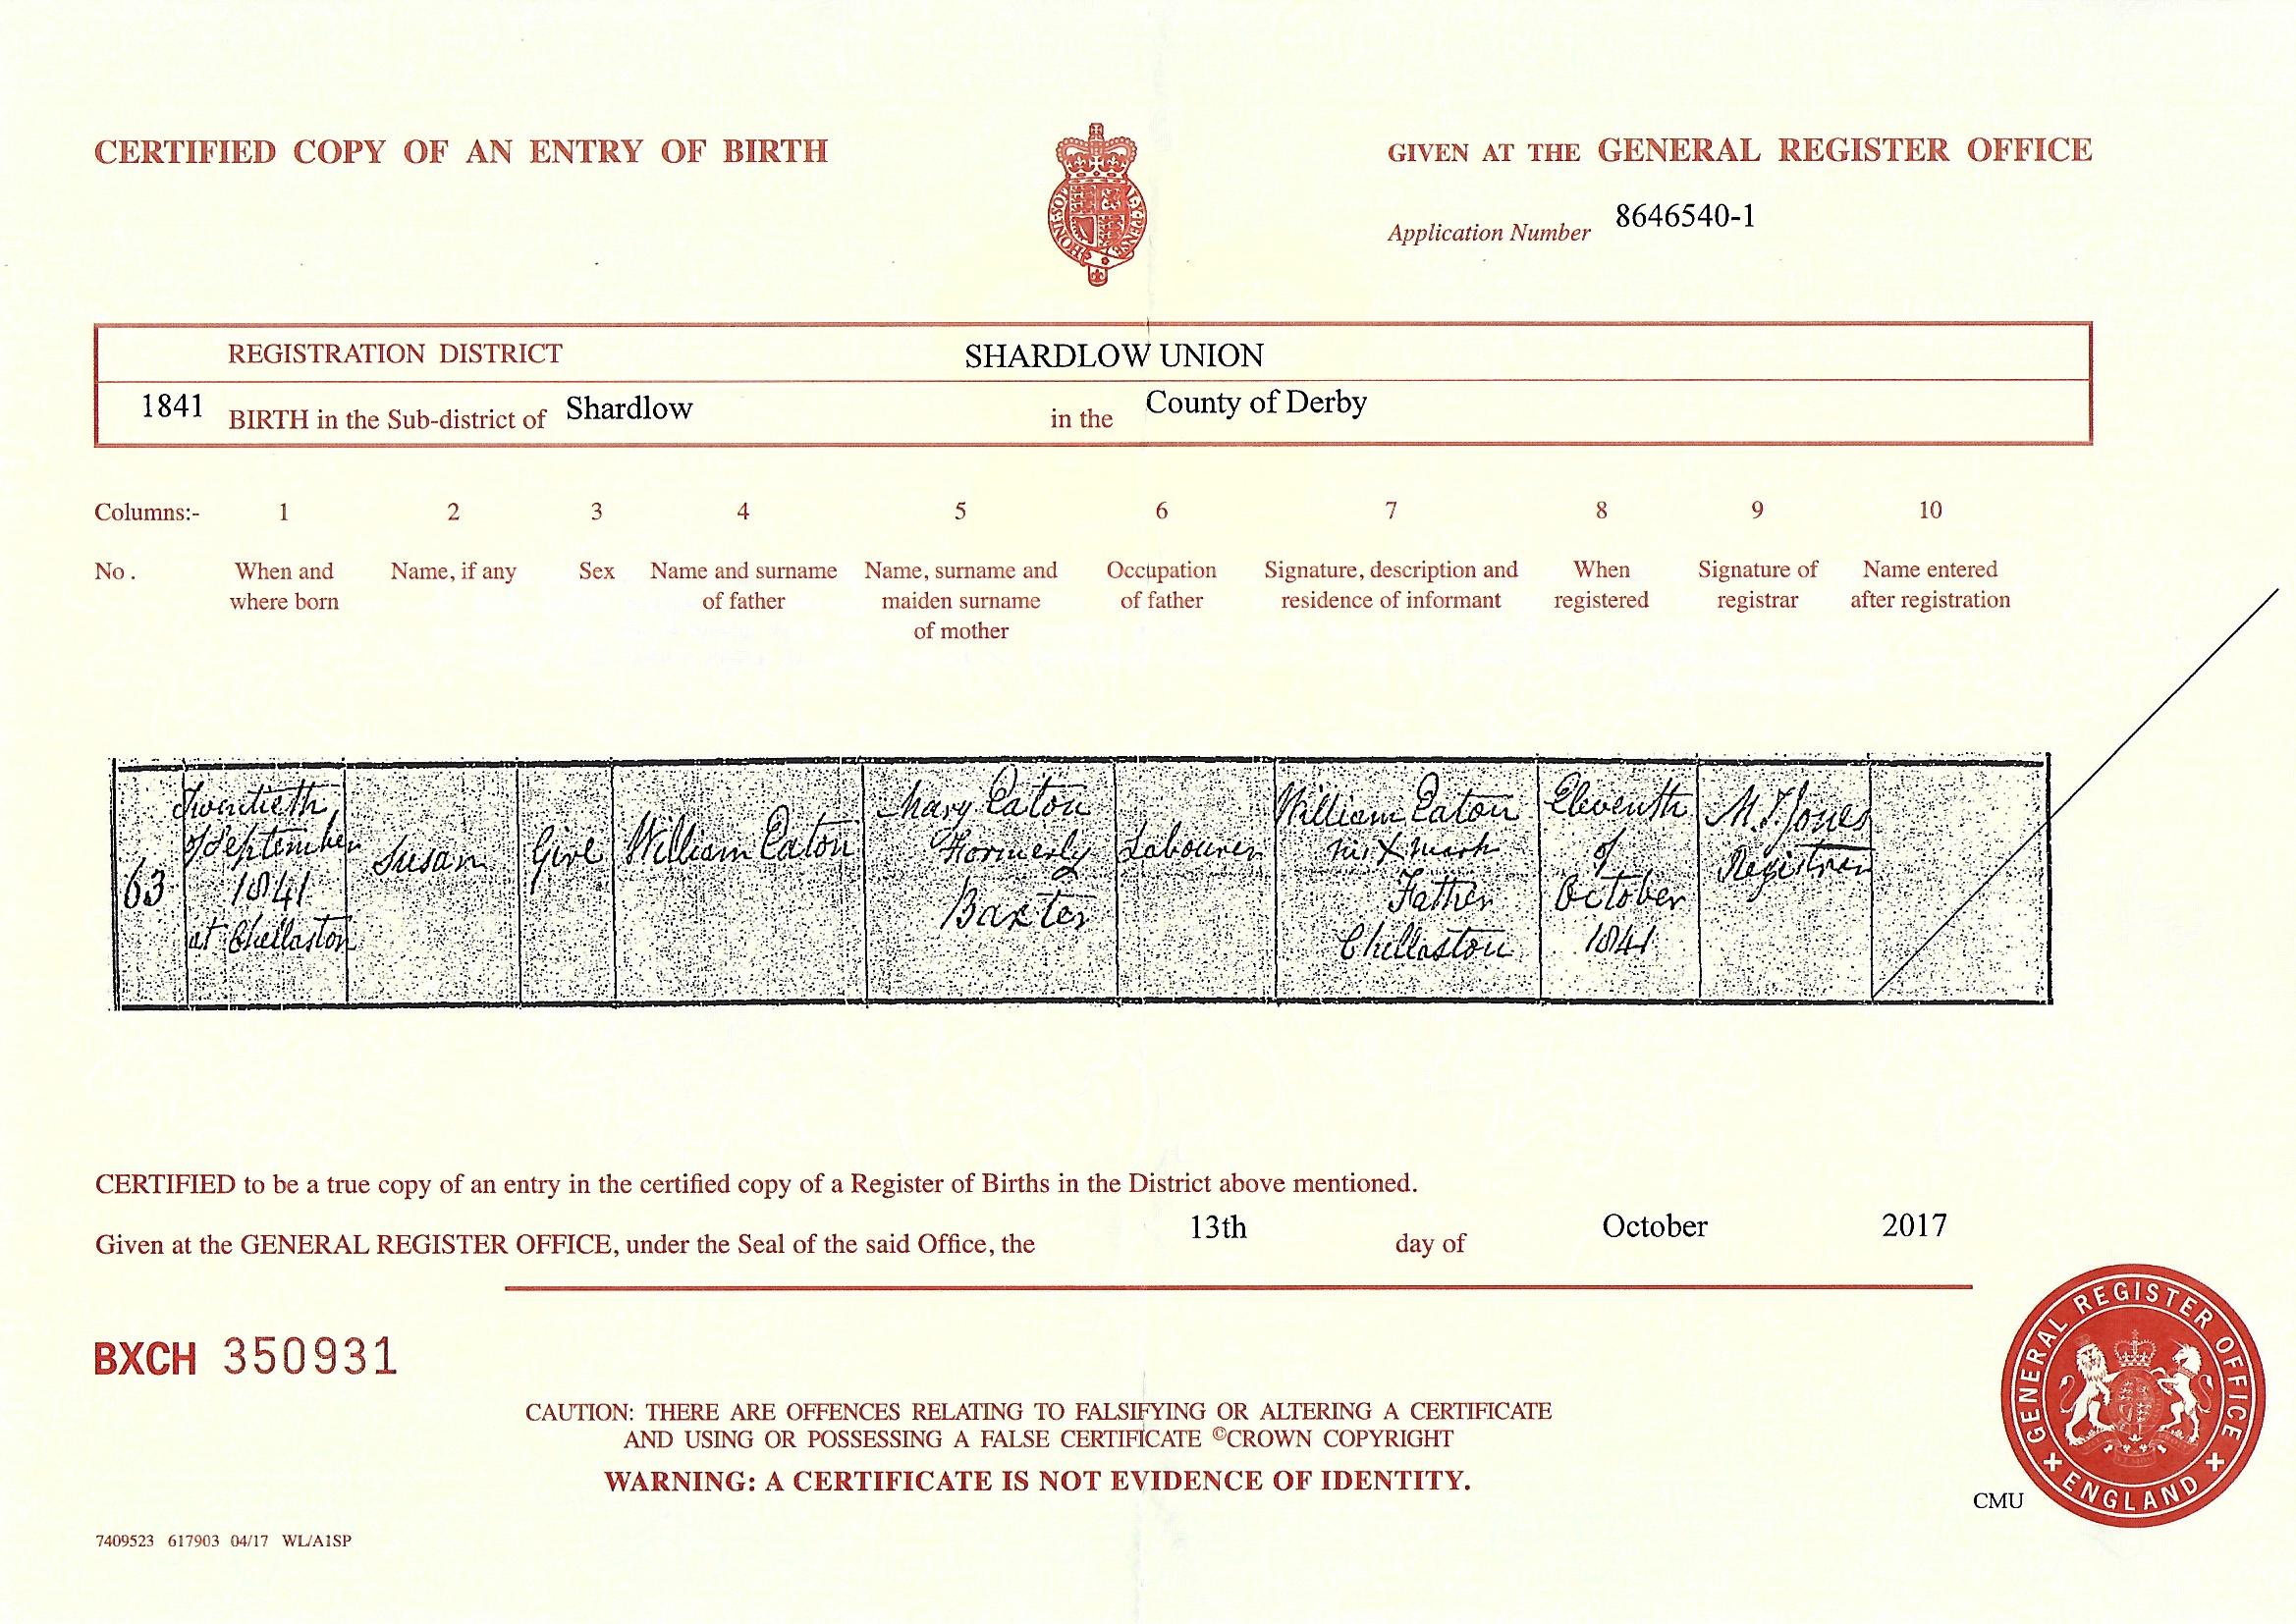 CERTIFIED COPY OF AN ENTRY OF BIRTH
GIVEN AT THE GENERAL REGISTER OFFICE
Application Number 8646540-1
REGISTRATION DISTRICT SHARDLOW UNION
1841 BIRTH in the Sub-district of Shardlow in the County of Derby
Columns:- 1 2 3 4 5 6 7 8 9 10
No. When and where born Name, if any Sex Name and surname of father Name, surname and maiden surname of mother Occupation of father Signature, description and residence of informant When registered Signature of registrar Name entered after registration
63
Twentieth
of September
1841
at Chellaston
Susan
Girl
William Eaton
Mary Eaton
Formerly
Baxter
Labourer
William Eaton
his X mark
Father
Chellaston
Eleventh
of
October
1841
M. J. Jones
Registrar
CERTIFIED to be a true copy of an entry in the certified copy of a Register of Births in the District above mentioned.
Given at the GENERAL REGISTER OFFICE, under the Seal of the said Office, the 13th day of October 2017
BXCH 350931
CAUTION: THERE ARE OFFENCES RELATING TO FALSIFYING OR ALTERING A CERTIFICATE
AND USING OR POSSESSING A FALSE CERTIFICATE ©CROWN COPYRIGHT
WARNING: A CERTIFICATE IS NOT EVIDENCE OF IDENTITY.
GENERAL REGISTER OFFICE
ENGLAND
CMU
7409523 617903 04/17 WL/A1SP